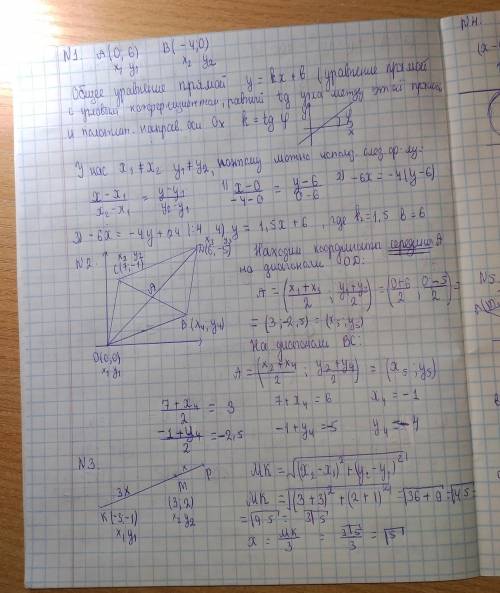 N1. A(0, 6) B(-4,0)
x₁ y₁ x₂ y₂
Общее уравнение прямой y = kx + b (уравнение прямой
с угловым коэффициентом, равный tg угла между этой прямой
и положит. направ. оси Ox k = tg φ
У нас x₁ ≠ x₂ y₁ ≠ y₂, поэтому можно использ. след. ф-лу:
x-x₁/x₂-x₁ = y-y₁/y₂-y₁ 1) x-0/-4-0 = y-6/0-6 2) -6x = -4(y-6)
3) -6x = -4y+24 |:4 4) y = 1,5x + 6, где k=1,5 b=6
N2
x₂ y₂
C(7;-1)
x₃ y₃
D(6,-5)
A
B(x₄, y₄)
O(0,0)
x₁ y₁
Находим координаты середины A
на диагонали OD:
A = (x₁+x₃/2, y₁+y₃/2) = (0+6/2, 0-5/2) =
= (3;-2,5) = (x₅; y₅)
На диагонали BC:
A = (x₂+x₄/2; y₂+y₄/2) = (x₅; y₅)
7+x₄/2 = 3 7+x₄ = 6 x₄ = -1
-1+y₄/2 = -2,5 -1+y₄ = -5 y₄ = -4
N3.
x P.
3x M
(3,2)
x₂ y₂
K(-3;-1)
x₁ y₁
MK = √(x₂-x₁)²+(y₂-y₁)²
MK = √(3+3)²+(2+1)² = √36+9 = √45 =
= √9·5 = 3√5
x = MK/3 = 3√5/3 = √5
N4.
N5